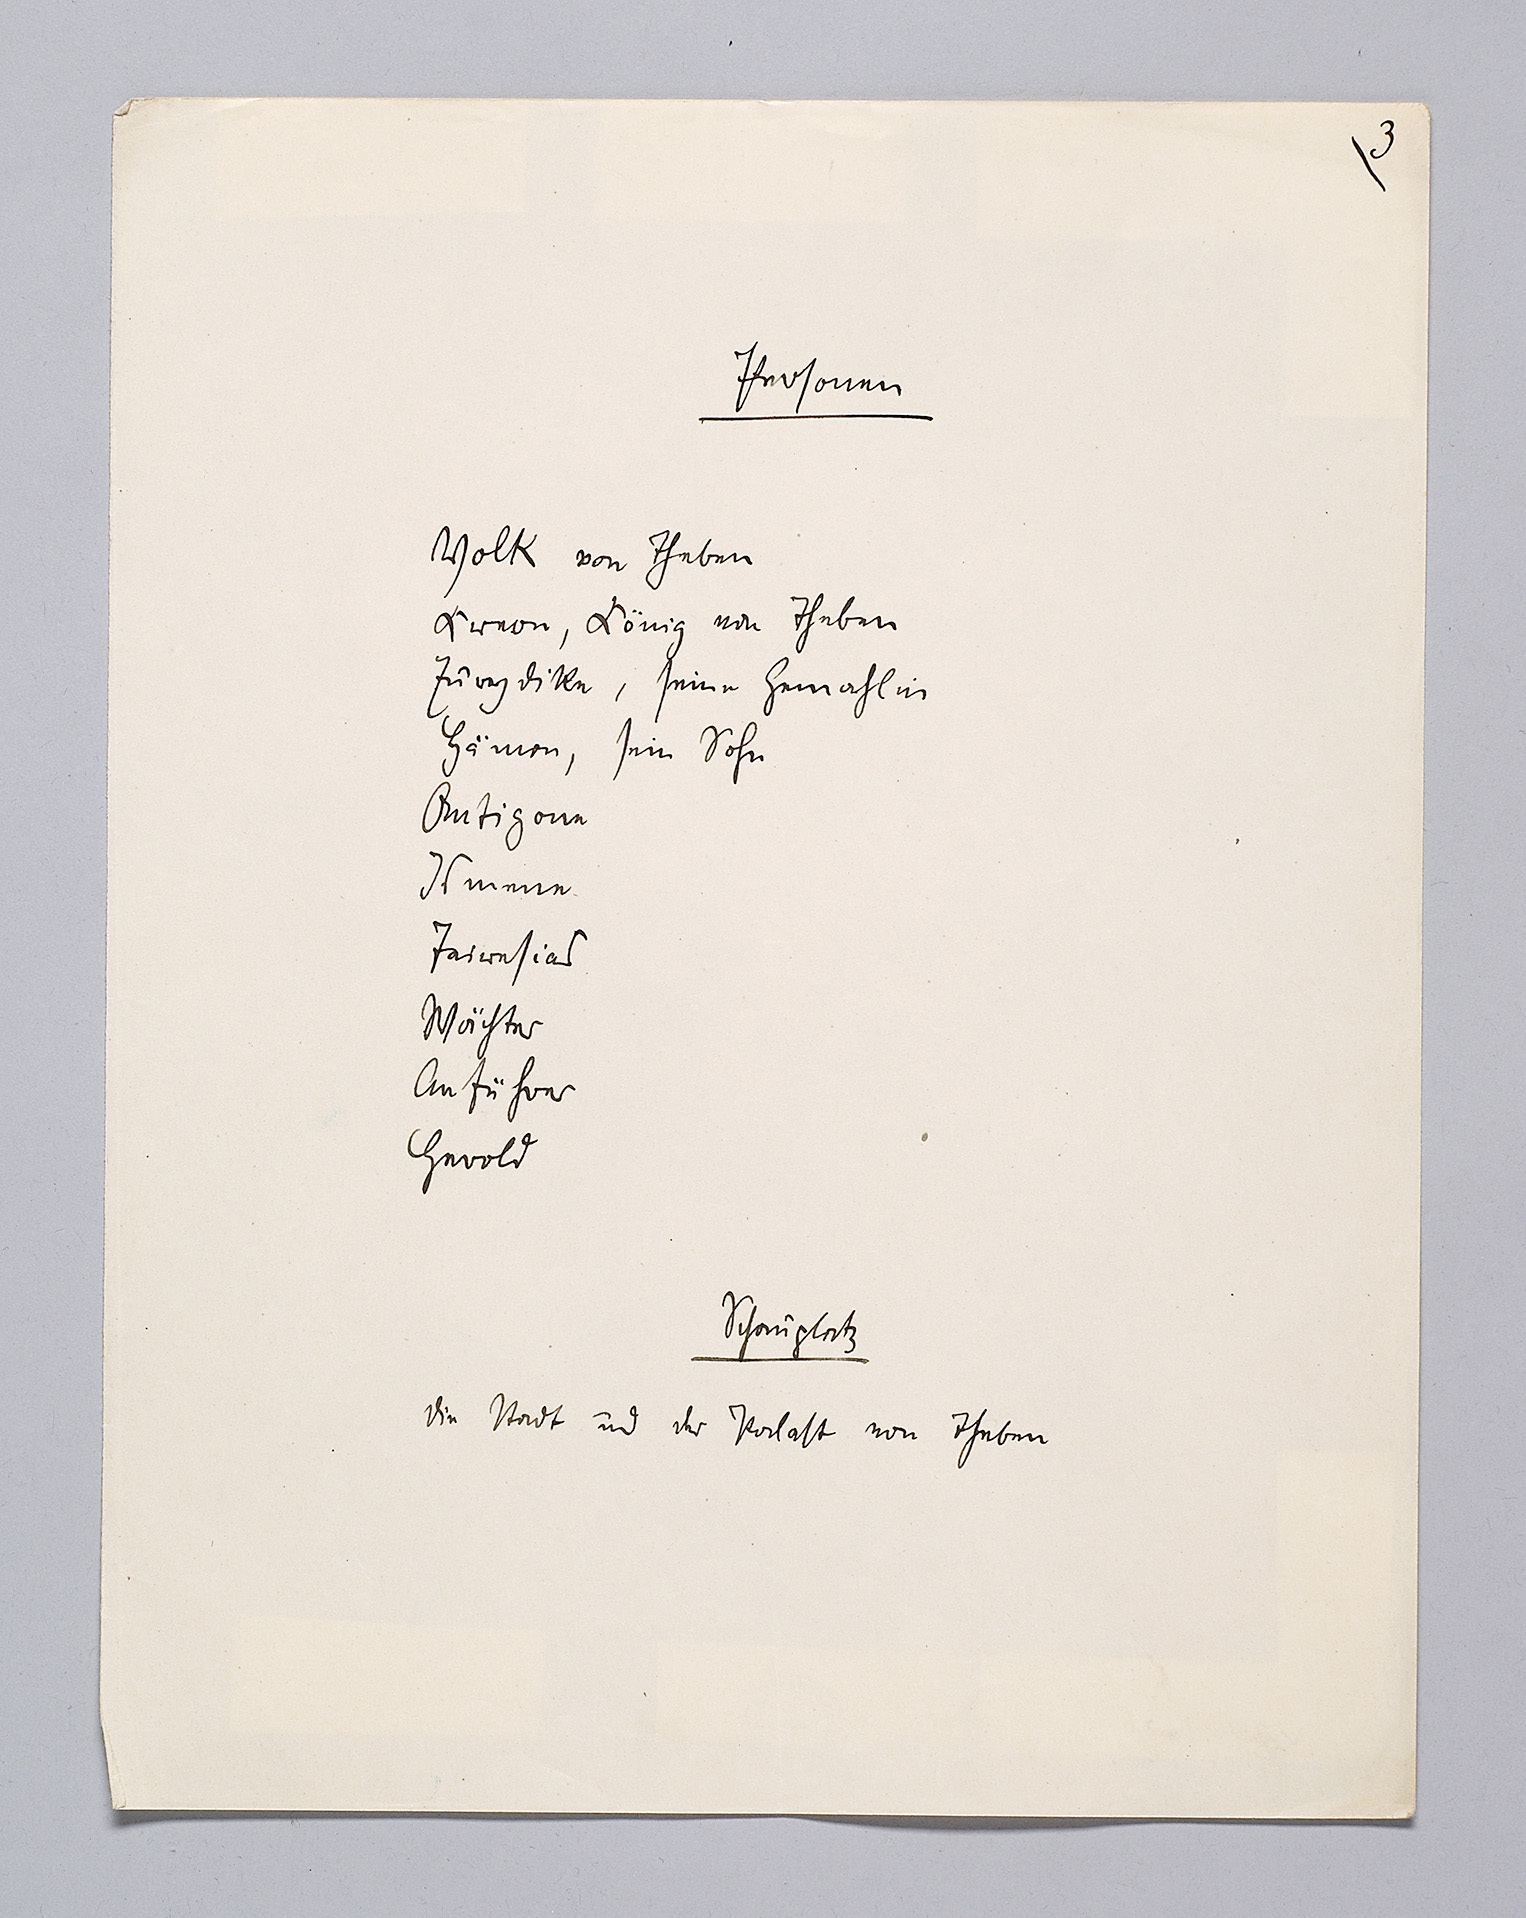 3
Personen
Volk von Theben
Kreon, König von Theben
Eurydike, seine Gemahlin
Hämon, sein Sohn
Antigone
Ismene
Teiresias
Wächter
Anführer
Herold
Schauplatz
die Stadt und der Palast von Theben